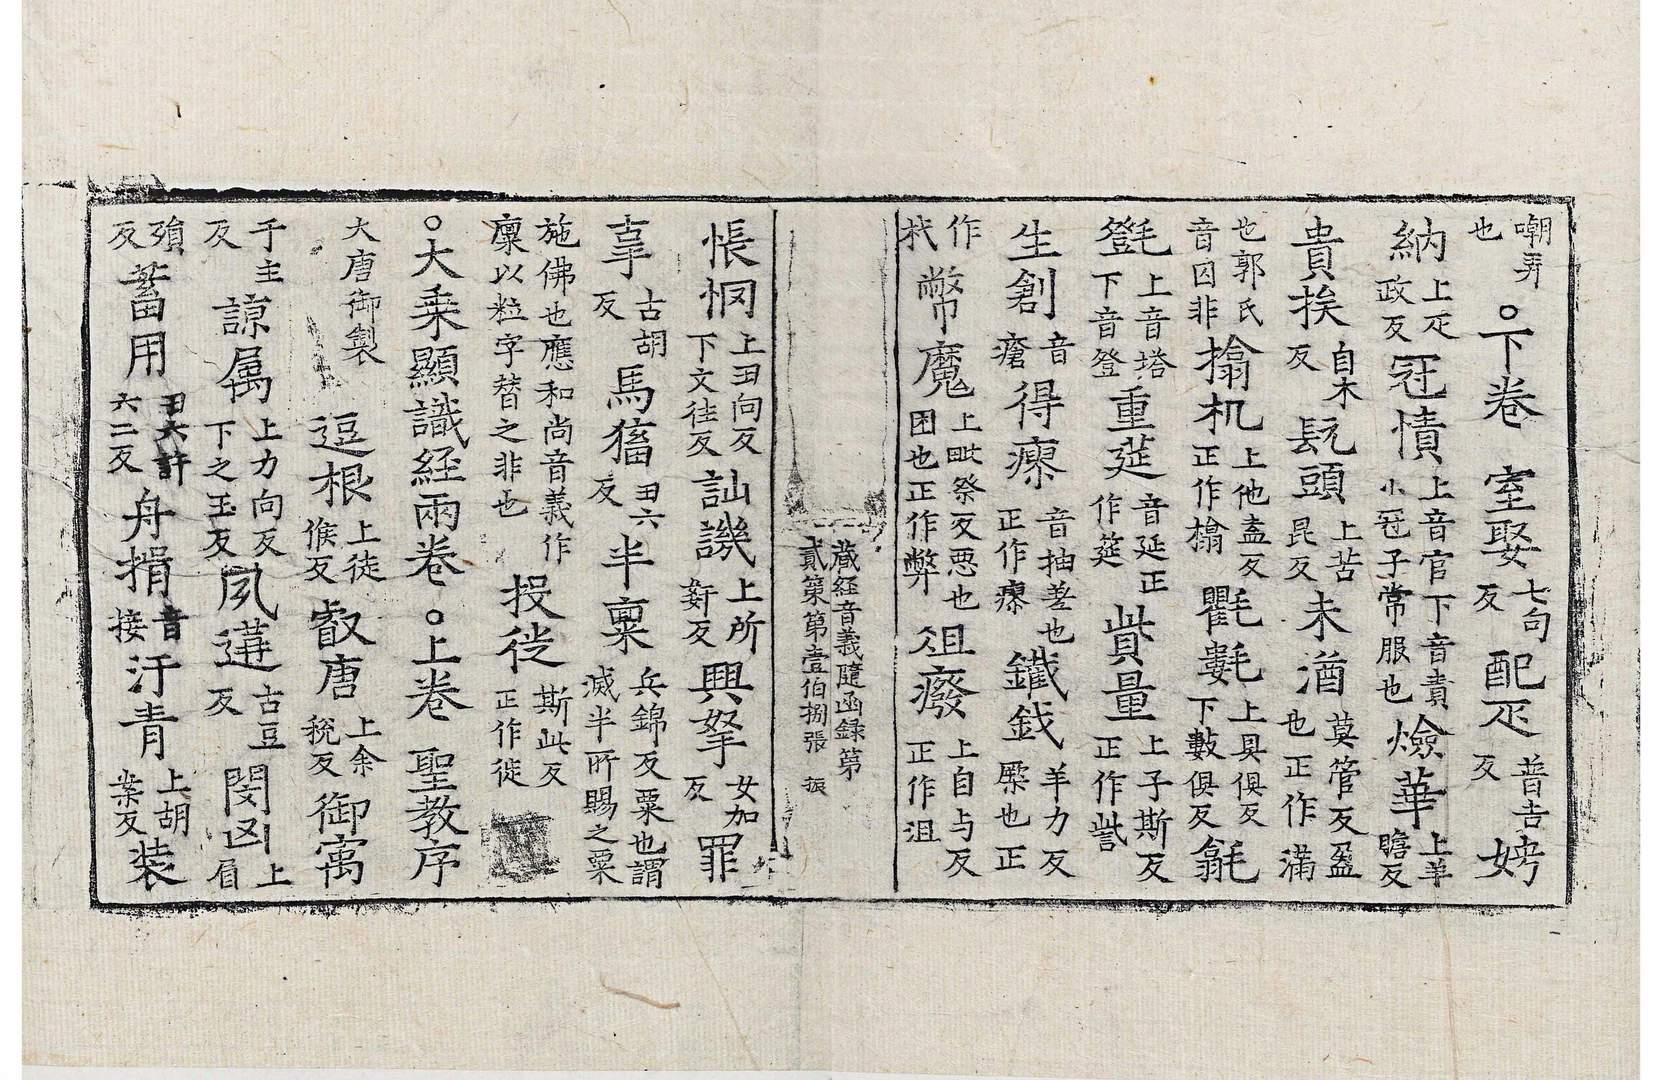 嘲弄也○下卷 室娶七句反配疋普吉反娉
納上疋政反冠幘上音官下音責小冠子常服也爓華上羊瞻反
貴挨自木反髡頭上苦昆反未滿莫管反盈也正作滿
也郭氏音囚非搨机上他盍反正作榻氍毹上具俱反下數俱反㲮
㲪上音塔下音登重莚音延正作筵貲量上子斯反正作訾
生創音瘡得瘳音抽差也正作瘳鐵鈛羊力反橜也正
作杙幣魔上毗祭反惡也困也正作弊俎癈上自与反正作沮
藏經音義隨函録第貳策第壹伯捌張 振
悵惘上丑向反下文往反訕譏上所姧反興拏女加反罪
辜古胡反馬稸丑六反半稟兵錦反粟也謂減半所賜之粟
施佛也應和尚音義作廩以粒字替之非也投徙斯此反正作徙
○大乗顯識經兩卷 ○上卷 聖教序
大唐御製 逗根上徒候反叡唐上余稅反御寓
于主反諒属上力向反下之玉反夙遘古豆反閔凶上眉
殞反蓄用丑六許六二反舟楫音接汗青上胡案反装